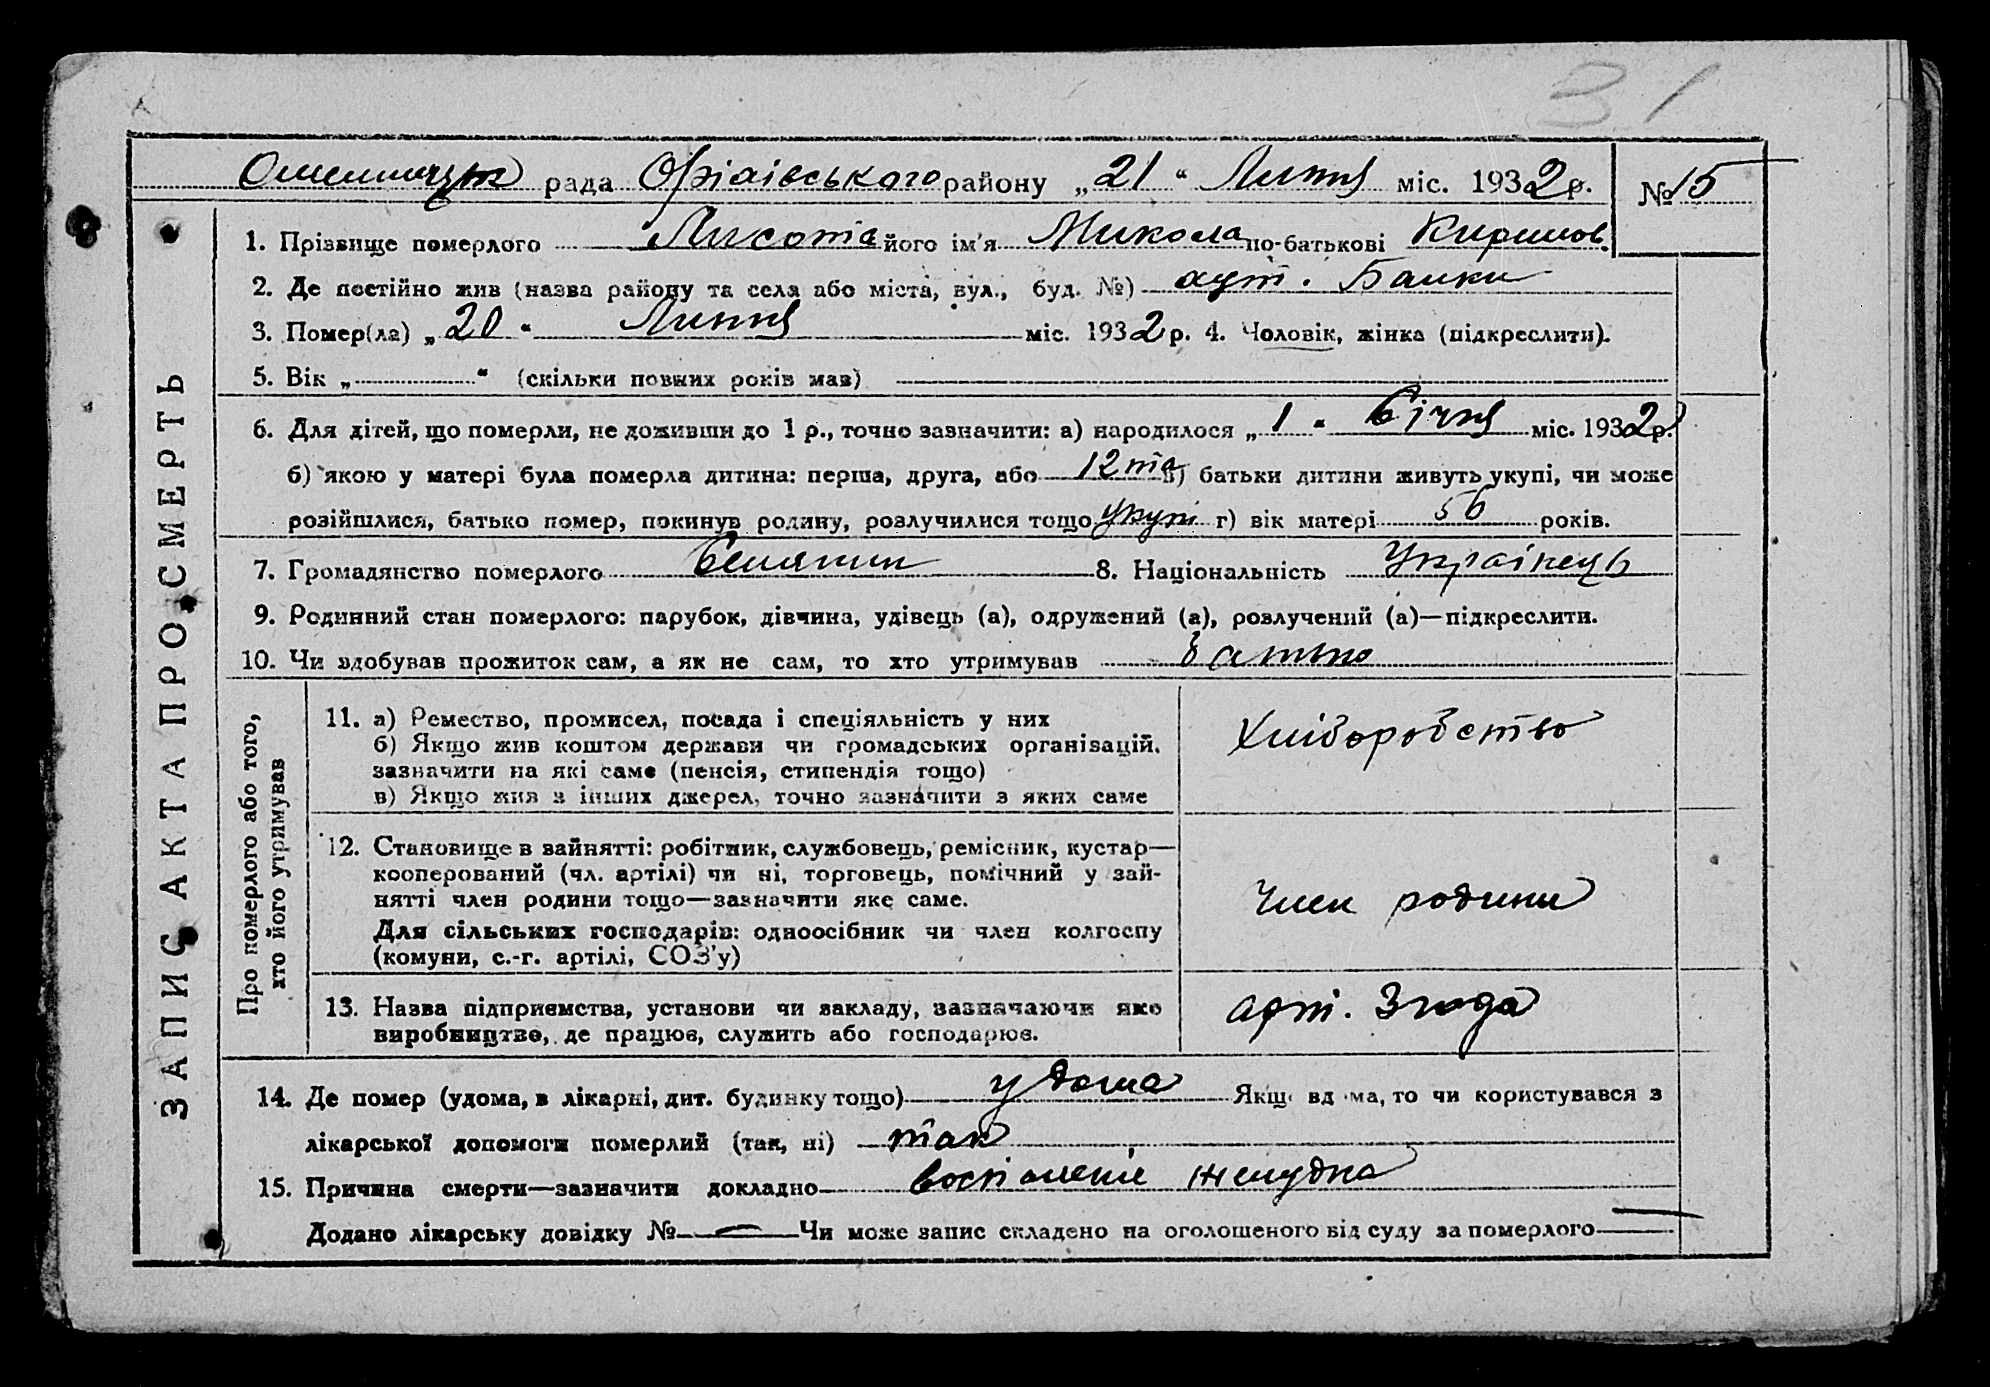 31
рада Офіаівського району „21“ Липня міс. 1932 р. № 15
ЗАПИС АКТА ПРО СМЕРТЬ
1. Прізвище померлого Лисота його ім'я Микола по-батькові Кирилов.
2. Де постійно жив (назва району та села або міста, вул., буд. №) хут. Балки
3. Помер(ла) „20“ Липня міс. 1932 р. 4. Чоловік, жінка (підкреслити).
5. Вік „ “ (скільки повних років мав)
6. Для дітей, що померли, не доживши до 1 р., точно зазначити: а) народилося „1“ Січня міс. 1932 р.
б) якою у матері була померла дитина: перша, друга, або 12 та в) батьки дитини живуть укупі, чи може
розійшлися, батько помер, покинув родину, розлучилися тощо укупі г) вік матері 56 років.
7. Громадянство померлого Селянин 8. Національність Українець
9. Родинний стан померлого: парубок, дівчина, удівець (а), одружений (а), розлучений (а)—підкреслити.
10. Чи здобував прожиток сам, а як не сам, то хто утримував батько
Про померлого або того,
хто його утримував
11. а) Ремество, промисел, посада і спеціяльність у них
б) Якщо жив коштом держави чи громадських організацій.
зазначити на які саме (пенсія, стипендія тощо)
в) Якщо жив з інших джерел, точно зазначити з яких саме
Хліборобство
12. Становище в зайнятті: робітник, службовець, ремісник, кустар—
кооперований (чл. артілі) чи ні, торговець, помічний у зай-
нятті член родини тощо—зазначити яке саме.
Для сільських господарів: одноосібник чи член колгоспу
(комуни, с.-г. артілі, СОЗ'у)
Член родини
13. Назва підприємства, установи чи закладу, зазначаючи яке
виробництво, де працює, служить або господарює.
арт. Згода
14. Де помер (удома, в лікарні, дит. будинку тощо) удома Якщо вдома, то чи користувався з
лікарської допомоги померлий (так, ні) так
15. Причина смерти—зазначити докладно воспаленіе желудка
Додано лікарську довідку № — Чи може запис складено на оголошеного від суду за померлого —